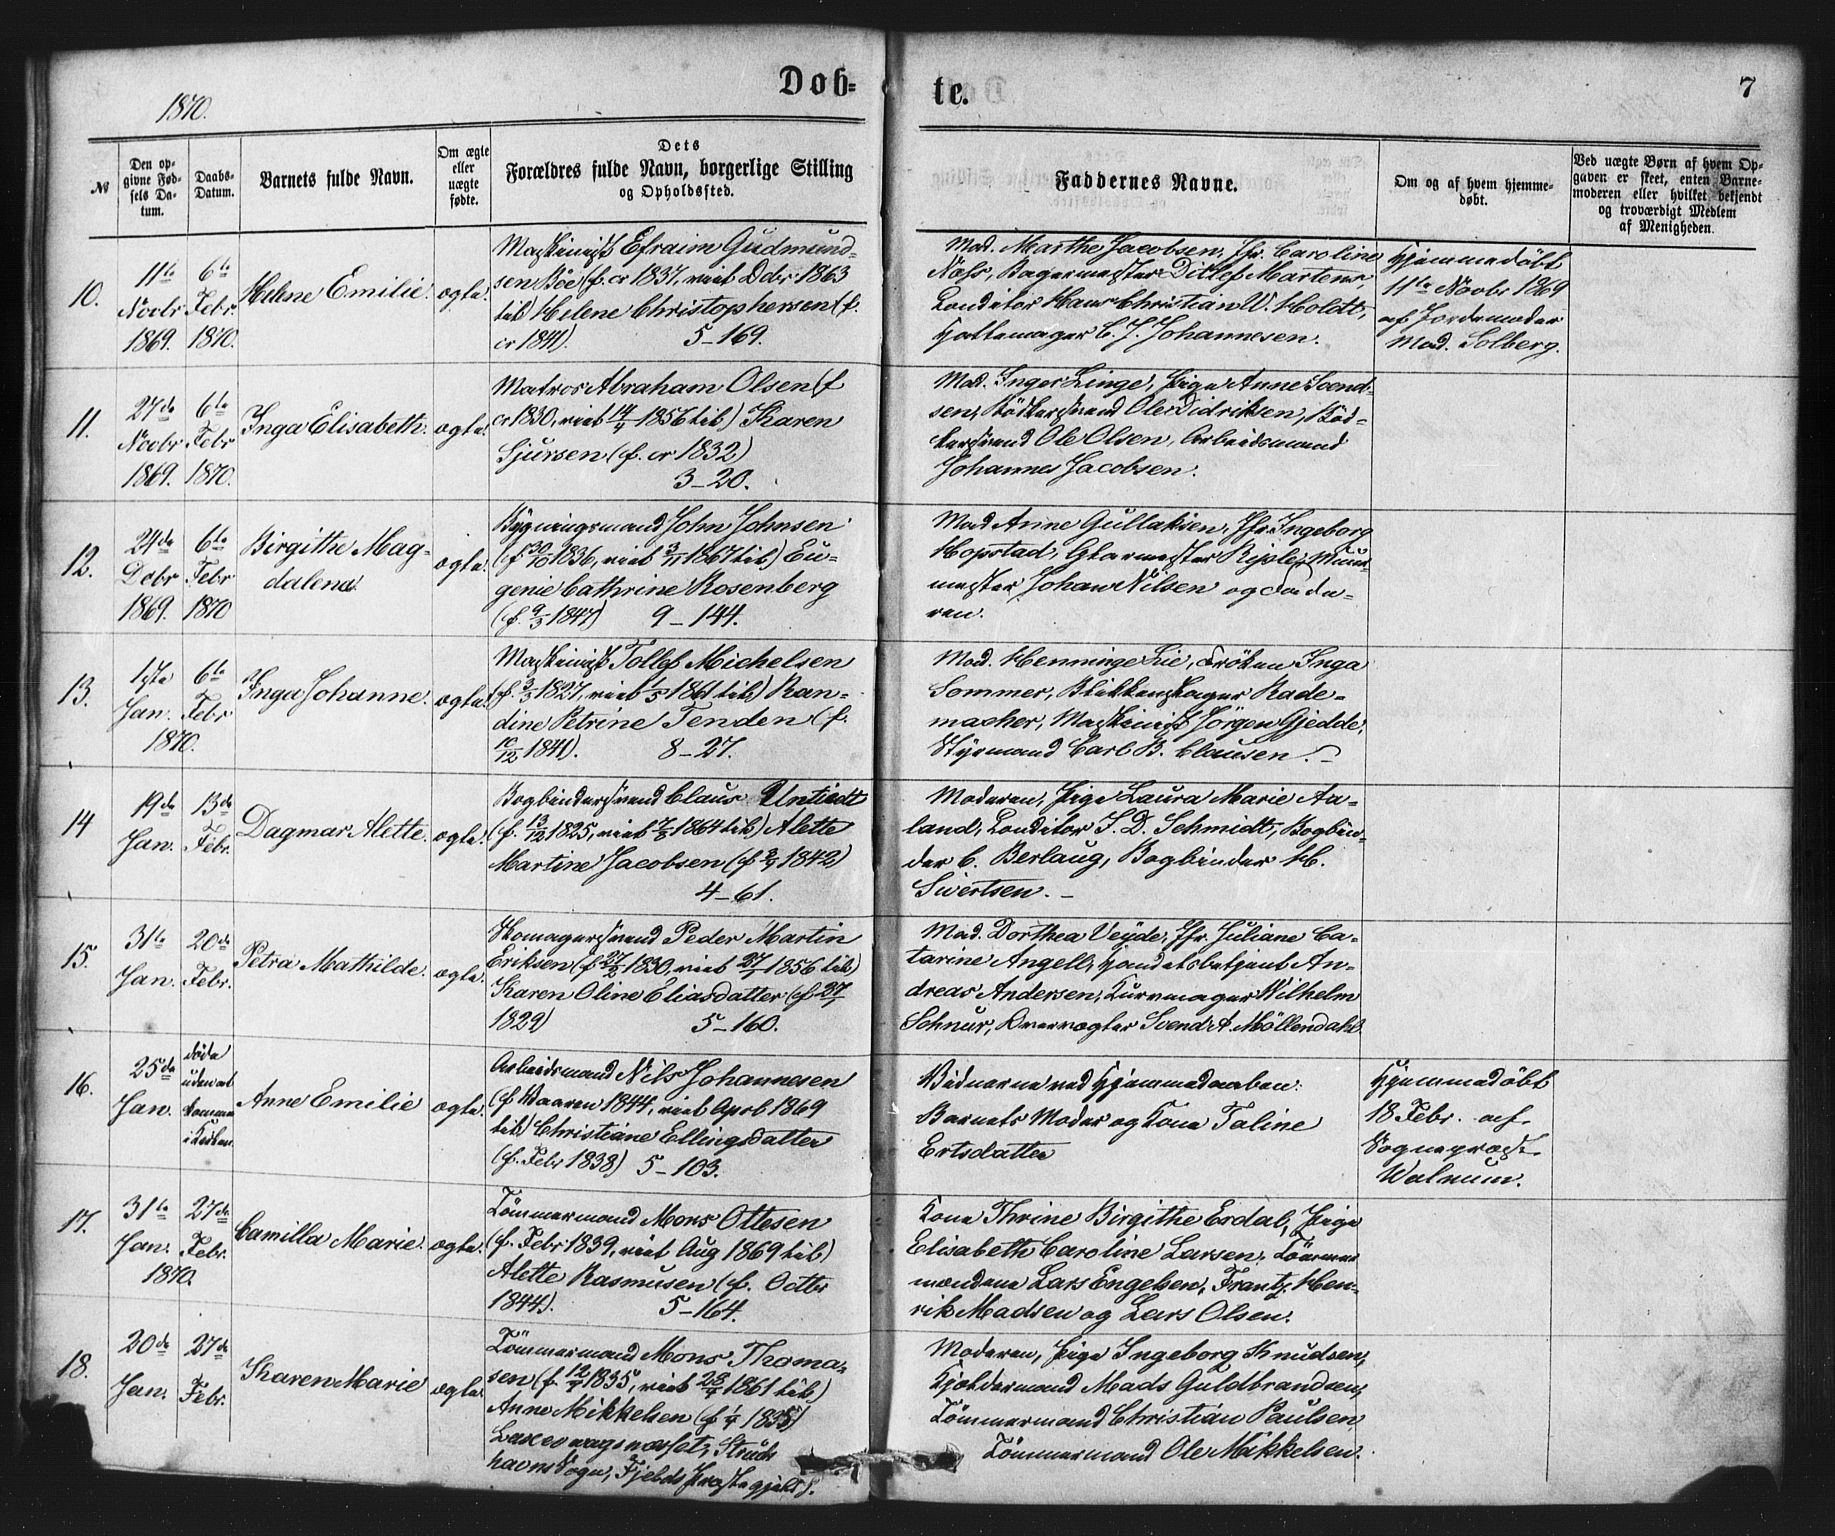 1870.
Döb-
te.
7
№
Den op-
givne Fød-
sels Da-
tum.
Daabs-
Datum.
Barnets fulde Navn.
Om ægte
eller
uægte
fødte.
Dets
Forældres fulde Navn, borgerlige Stilling
og Opholdssted.
Faddernes Navne.
Om og af hvem hjemme-
døbt.
Ved uægte Børn af hvem Op-
gaven er skeet, enten Barne-
moderen eller hvilket bekjendt
og troværdigt Medlem
af Menigheden.
10.
11te
Novbr
1869.
6te
Febr.
1870.
Helene Emilie.
ægte.
Maskinist Efraim Gudmund-
sen Böe (f. cr 1837, viet Dcbr 1863
til) Helene Christophersen (f.
cr 1841). 5-169.
Mad. Marthe Jacobsen, Jfr. Caroline
Næss, Bagermester Ditlef Martens,
Conditor Hans Christian W. Holdt,
Hattemager C. J. Johannesen.
Hjemmedöbt
11te Novbr 1869
af Jordemoder
Mad. Solberg.
11.
27de
Novbr
1869.
6te
Febr
1870.
Inga Elisabeth.
ægte.
Matros Abraham Olsen (f
cr 1830, viet 14/4 1857 til) Karen
Sjursen (f. cr 1832)
3-20.
Mad. Inger Linge, Pige Anne Svend-
sen, Bödkersvend Ole Didriksen, Böd-
kersvend Ole Olsen, Arbeidsmand
Johannes Jacobsen.
12.
24de
Dcbr
1869.
6te
Febr
1870
Birgithe Mag-
dalena
ægte.
Bygningsmand John Johnsen
(f 30/10 1836, viet 3/11 1867 til) Eu-
genie Cathrine Rosenberg
(f. 9/3 1847) 9-144.
Mad Anne Gullaksen, Jfr. Ingeborg
Hopstad, Glarmester Riple, Muur-
mester Johan Nilsen og Fade-
ren.
13.
1ste
Jan.
1870.
6te
Febr
Inga Johanne.
ægte.
Maskinist Tollef Michelsen
(f. 3/3 1827, viet 1/3 1861 til) Ran-
dine Petrine Tenden (f.
10/12 1841). 8-27.
Mad. Henninge Lie, Fröken Inga
Sommer, Blikkenslager Rade-
macher, Maskinist Jörgen Gjedde,
Styrmand Carl B. Clausen.-
14
19de
Jan.
13de
Febr.
Dagmar Alette.
ægte.
Bogbindersvend Claus Untiedt
(f. 13/12 1825, viet 7/8 1864 til) Alette
Martine Jacobsen (f 8/9 1842)
4-61.
Moderen, Pige Laura Marie Aa-
land, Conditor J. D. Schmidt, Bogbin-
der C. Berlaug, Bogbinder H.
Sivertsen.-
15.
31te
Jan.
20de
Febr.
Petra Mathilde.
ægte.
Skomagersvend Peder Martin
Eriksen (f 27/2 1830, viet 27/1 1856 til)
Karen Oline Eliasdatter (f 27/1
1829) 5-160.
Mad. Dorthea Veyde, Jfr. Juliane Ca-
tarine Angell, Handelsbetjent An-
dreas Andersen, Kurvmager Wilhelm
Schnur, Overvægter Svend A. Möllendahl
16.
25de
Jan.
döde
uden at
komme
i Kirken.
Anne Emilie
ægte.
Arbeidsmand Nils Johannesen
(f Vaaren 1844, viet April 1869
til) Christiane Ellingsdatter
(f. Febr 1838) 5-103.
Vidnerne ved Hjemmedaaben:
Barnets Moder og Kone Taline
Ertsdatter
Hjemmedöbt
18 Febr. af
Sognepræst
Walnum.
17.
31te
Jan.
1870.
27de
Febr.
Camilla Marie.
ægte.
Tömmermand Mons Ottesen
(f. Febr 1839, viet Aug 1869 til)
Alette Rasmusen (f. Octbr
1844). 5-164.
Kone Thrine Birgithe Erdal, Pige
Elisabeth Caroline Larsen, Tömmer
mændene Lars Engelsen, Frantz Hen-
rik Madsen og Lars Olsen.
18.
20de
Jan.
27de
Febr.
Karen Marie
ægte.
Tömmermand Mons Thoma-
sen (f. 12/7 1835, viet 28/4 1861 til)
Anne Mikkelsen (f 1/4 1835)
havns Sogn, Fjelds Præstegjeld.
Moderen, Pige Ingeborg Knudsen,
Kjeldermand Mads Guldbrandsen,
Tömmermand Christian Paulsen
Tömmermand Ole Mikkelsen.